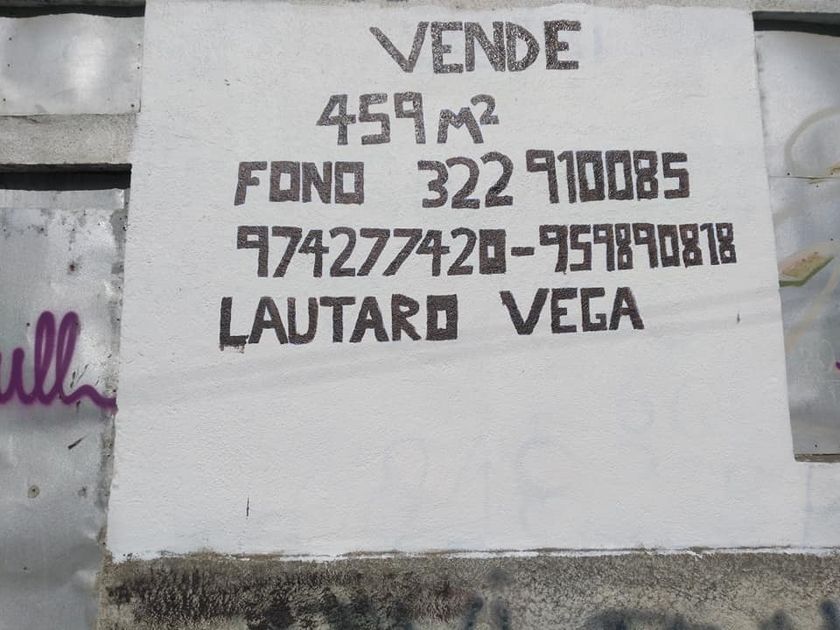 VENDE
459 M²
FONO 322 910085
974277420-959890818
LAUTARO VEGA